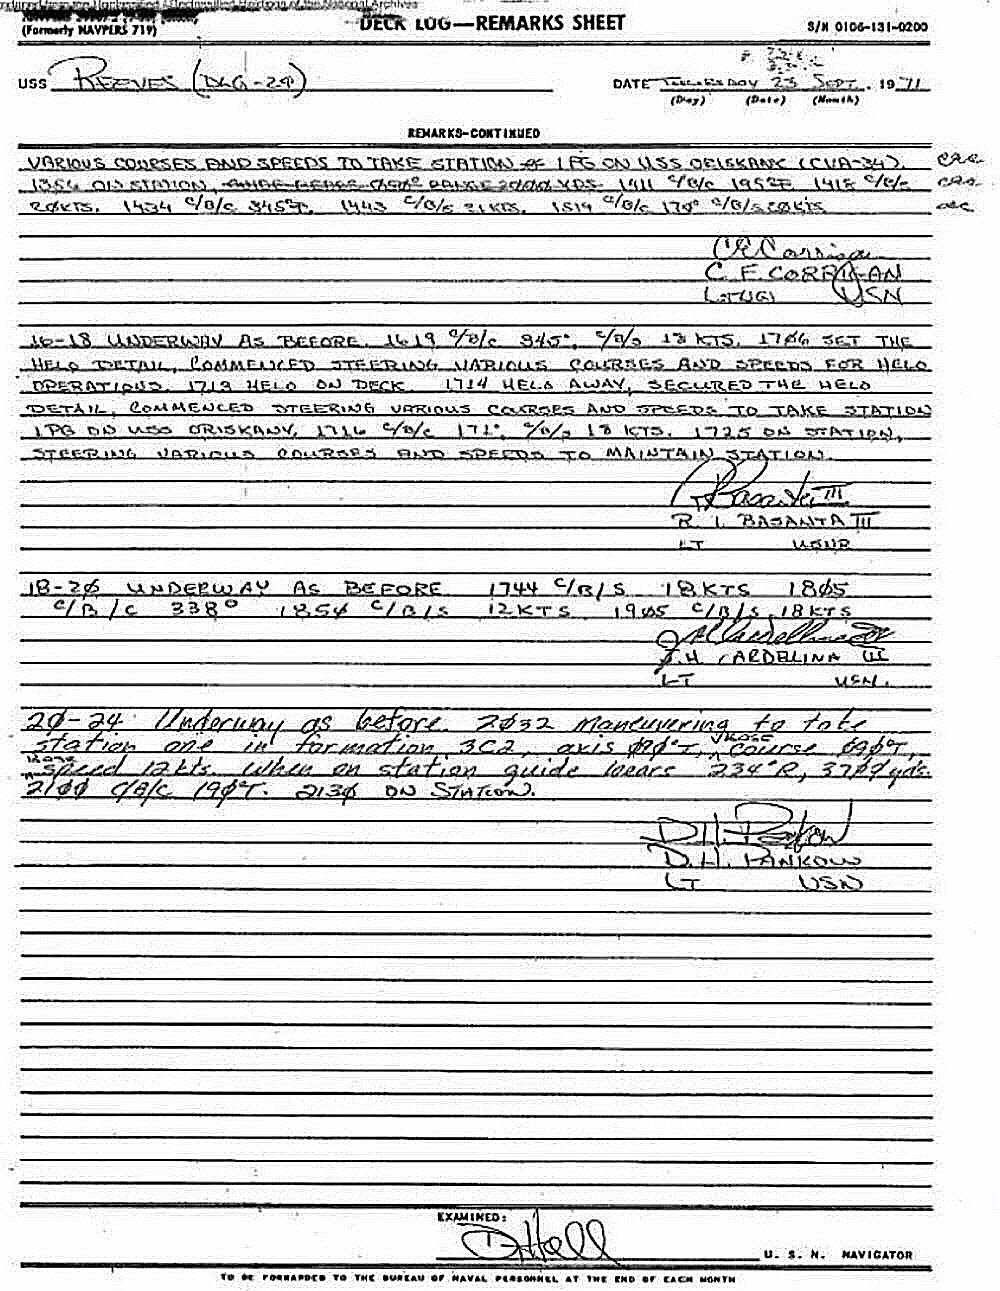 Reproduced from the Unclassified / Declassified Holdings of the National Archives
(Formerly NAVPERS 719)
DECK LOG—REMARKS SHEET
S/N 0106-131-0200
USS REEVES (DLG-24)
DATE THURSDAY 23 SEPT. 1971
(Day) (Date) (Month)
REMARKS-CONTINUED
VARIOUS COURSES AND SPEEDS TO TAKE STATION 1 PG ON USS ORISKANY (CVA-34).
ON STATION, 1411 C/B/C 195°T. 1418 C/B/C
20KTS. 1434 C/B/C 345°T. 1443 C/B/S 21KTS. 1519 C/B/C 170° C/B/S 20KTS
C. E. CORRIGAN
LTJG USN
16-18 UNDERWAY AS BEFORE. 1619 C/B/C 345°, C/B/S 18 KTS. 1706 SET THE
HELO DETAIL, COMMENCED STEERING VARIOUS COURSES AND SPEEDS FOR HELO
OPERATIONS. 1713 HELO ON DECK. 1714 HELO AWAY, SECURED THE HELO
DETAIL, COMMENCED STEERING VARIOUS COURSES AND SPEEDS TO TAKE STATION
1PG ON USS ORISKANY. 1716 C/B/C 171°, C/B/S 18 KTS. 1725 ON STATION,
STEERING VARIOUS COURSES AND SPEEDS TO MAINTAIN STATION.
R. I. BASANTA III
LT USNR
18-20 UNDERWAY AS BEFORE 1744 C/B/S 18KTS 1805
C/B/C 338° 1850 C/B/S 12KTS 1905 C/B/S 18KTS
J.H. CARDELINA III
LT USN.
20-24 Underway as before. 2032 Maneuvering to take
station one in formation 3C2, axis 020°T, base course 090°T,
base speed 12kts. When on station guide bears 234°R, 3700 yds.
2100 C/B/C 190°T. 2130 ON STATION.
D.H. PANKOW
LT USN
EXAMINED:
D Hall
U. S. N. NAVIGATOR
TO BE FORWARDED TO THE BUREAU OF NAVAL PERSONNEL AT THE END OF EACH MONTH